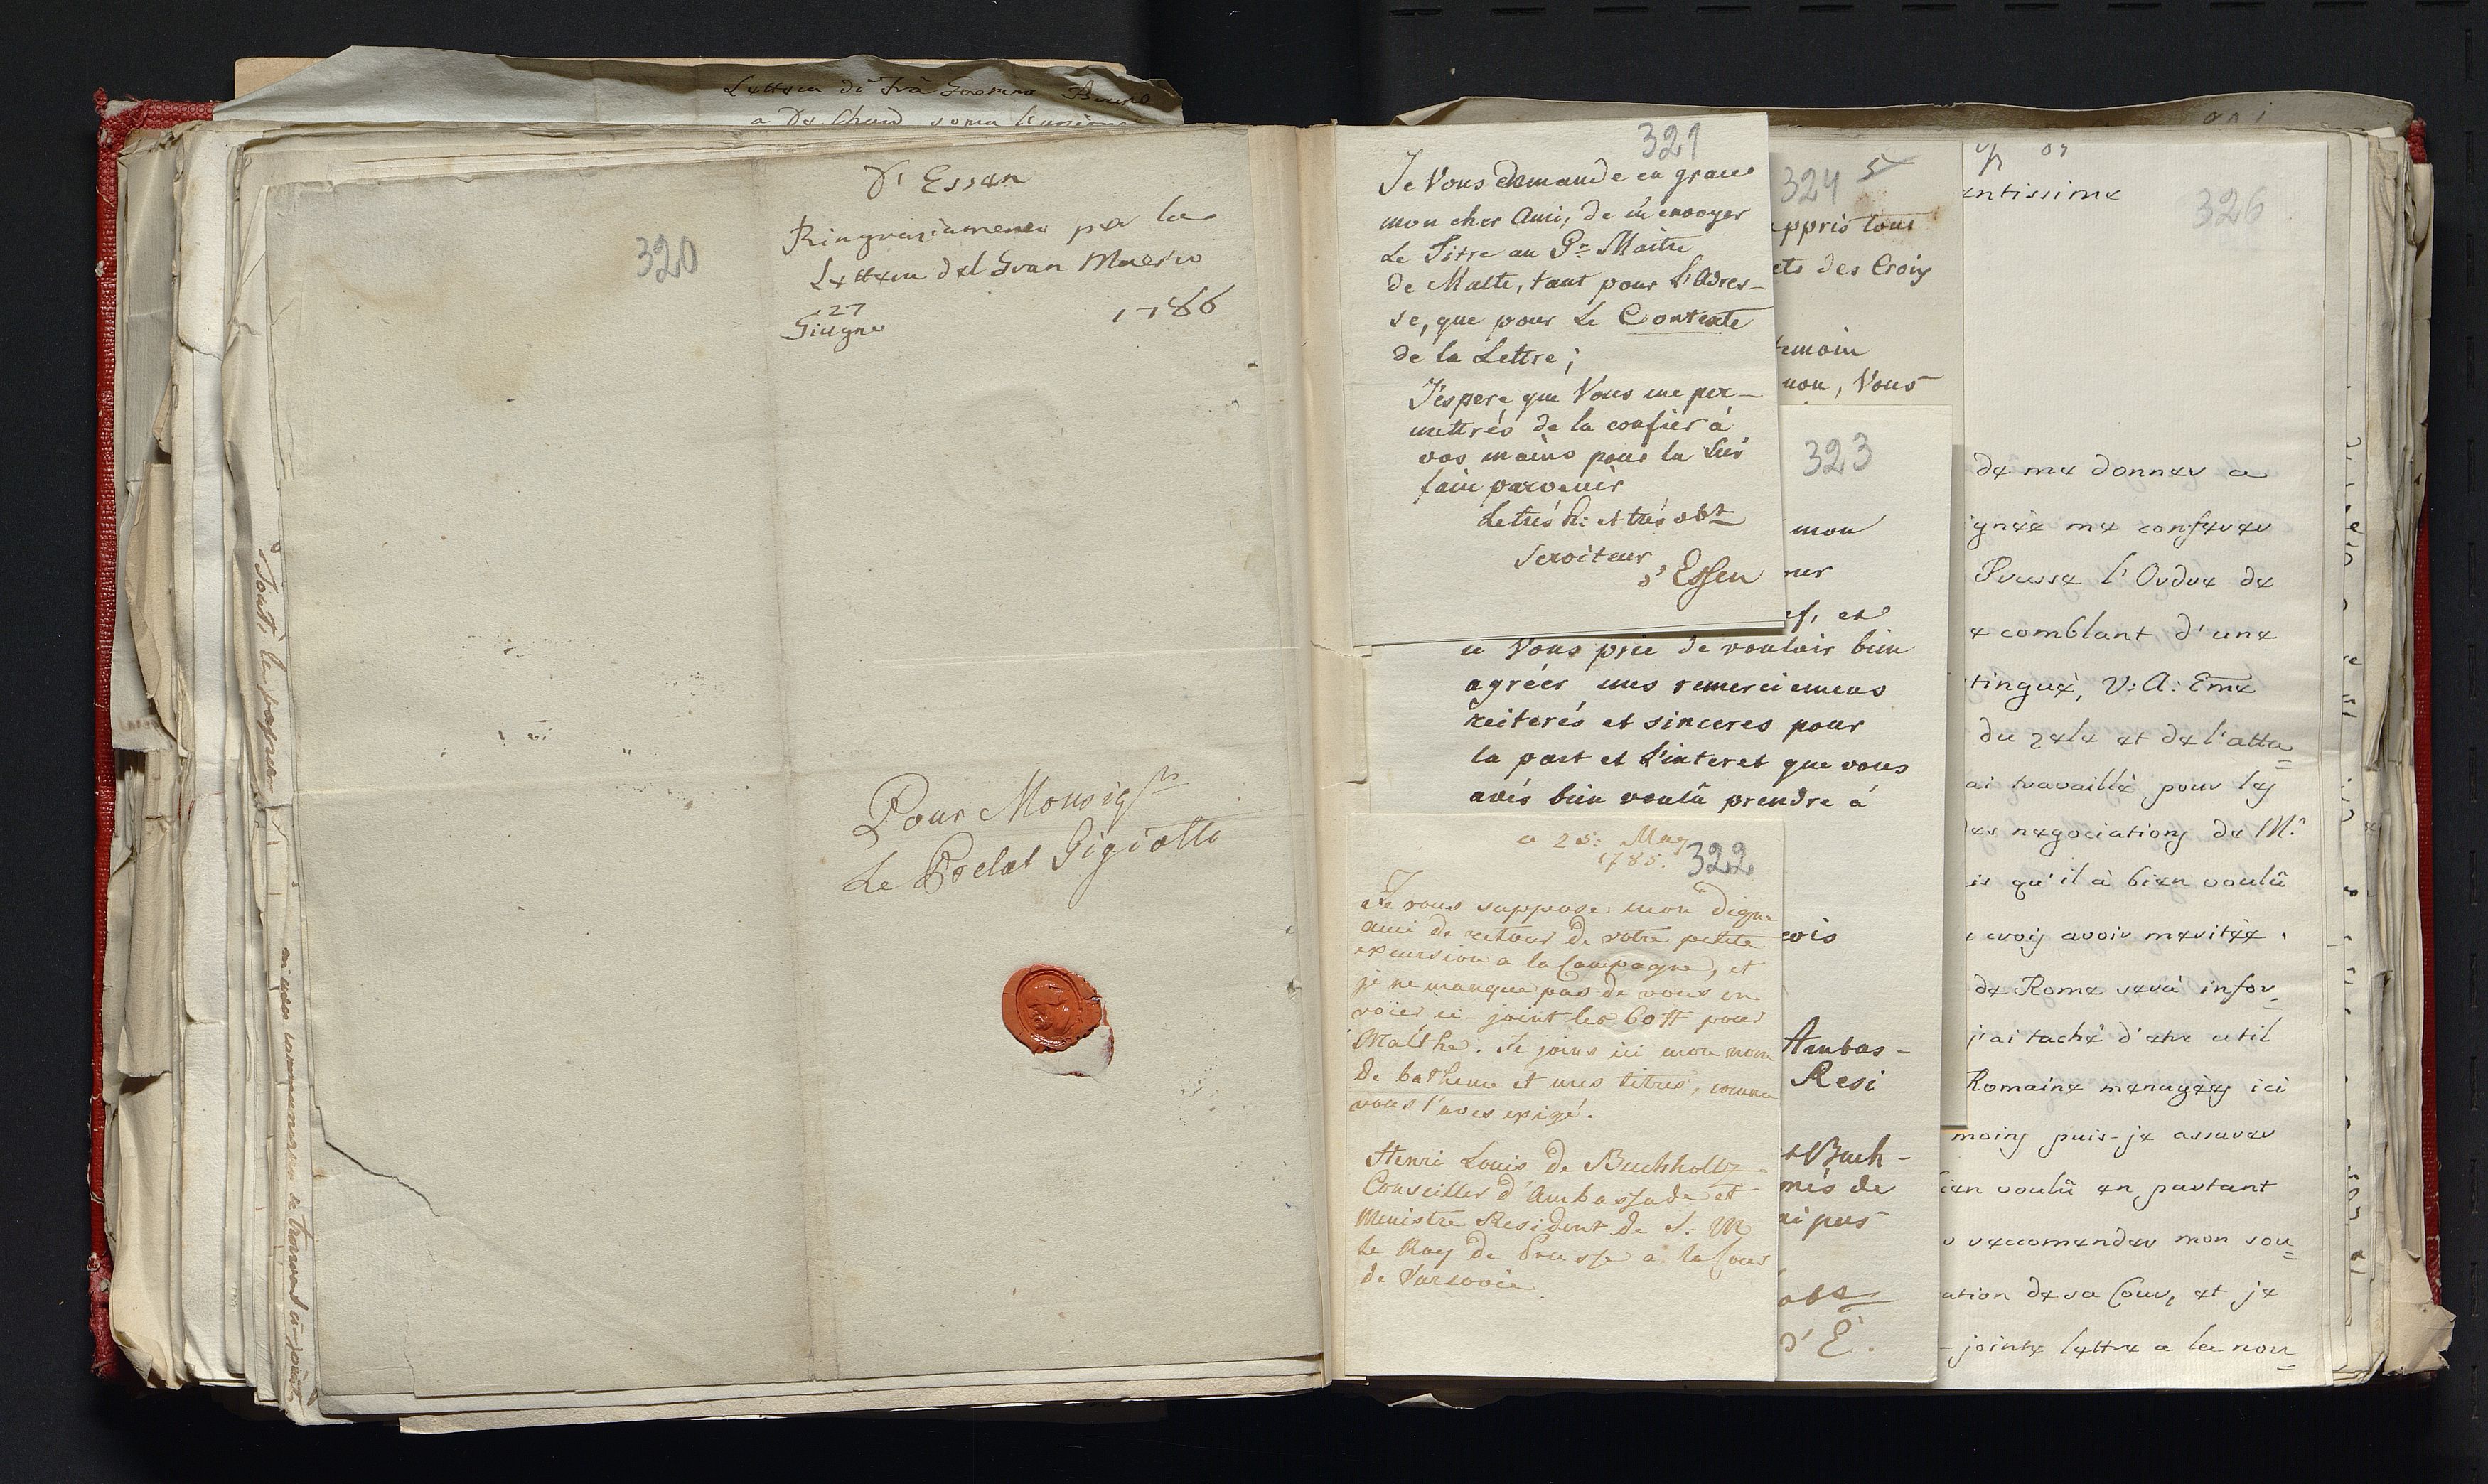 Lettera di Frà Giacomo
D'Essen
Ringraziamento per la
Lettera del Gran Maestro
27
Giugno 1786
320
Pour Monsigr
Le Prelat Gigiotti
Tout, le papier
se trouvent ci-joint
321
Je Vous demande en grace
mon cher Ami, de m'envoyer
Le Titre au Gr Maitre
de Malte, tant pour L'Adres-
se, que pour Le Contexte
de la Lettre;
J'espere que Vous me per-
mettrés de la confier à
vos mains pour la lui
faire parvenir
Le trés h: et trés obt
Serviteur
d'Essen
324
appris tous
ets des Croix
temoin
non, Vous
323
mon
ner
ef, et
ce Vous prie de vouloir bien
agréér mes remerciemens
reiterés et sinceres pour
la part et L'interet que vous
avés bien voulû prendre à
vois
Ambas-
Resi
Buch-
més de
ni pas
obt
d'E.
ce 25: May
1785.
322
Je vous suppose mon digne
ami de retour de votre petite
excursion a la Campagne, et
je ne manque pas de vous en
voier ci-joint les 60 # pour
Malthe. Je joins ici mon nom
de batheme et mes titres, comme
vous l'aves exigé.
Henri Louis de Buchholtz
Conseiller d'Ambassade et
Ministre Resident de S: M
le Roy de Prusse a la Cour
de Varsovie.
326
entissime
de me donner a
ignée me conferer
Prusse l'Ordre de
e comblant d'une
tingué, V: A: Eme
du zele et de l'atta
ai travaillé pour les
des negociations de Mr
is qu'il à bien voulû
e crois avoir meritée.
de Rome serà infor
j'ai taché d'etre util
Romaine menagées ici
moins puis-je assurer
ien voulû en partant
r reccomender mon sou
ation de sa Cour, et je
-jointe lettre a la nou